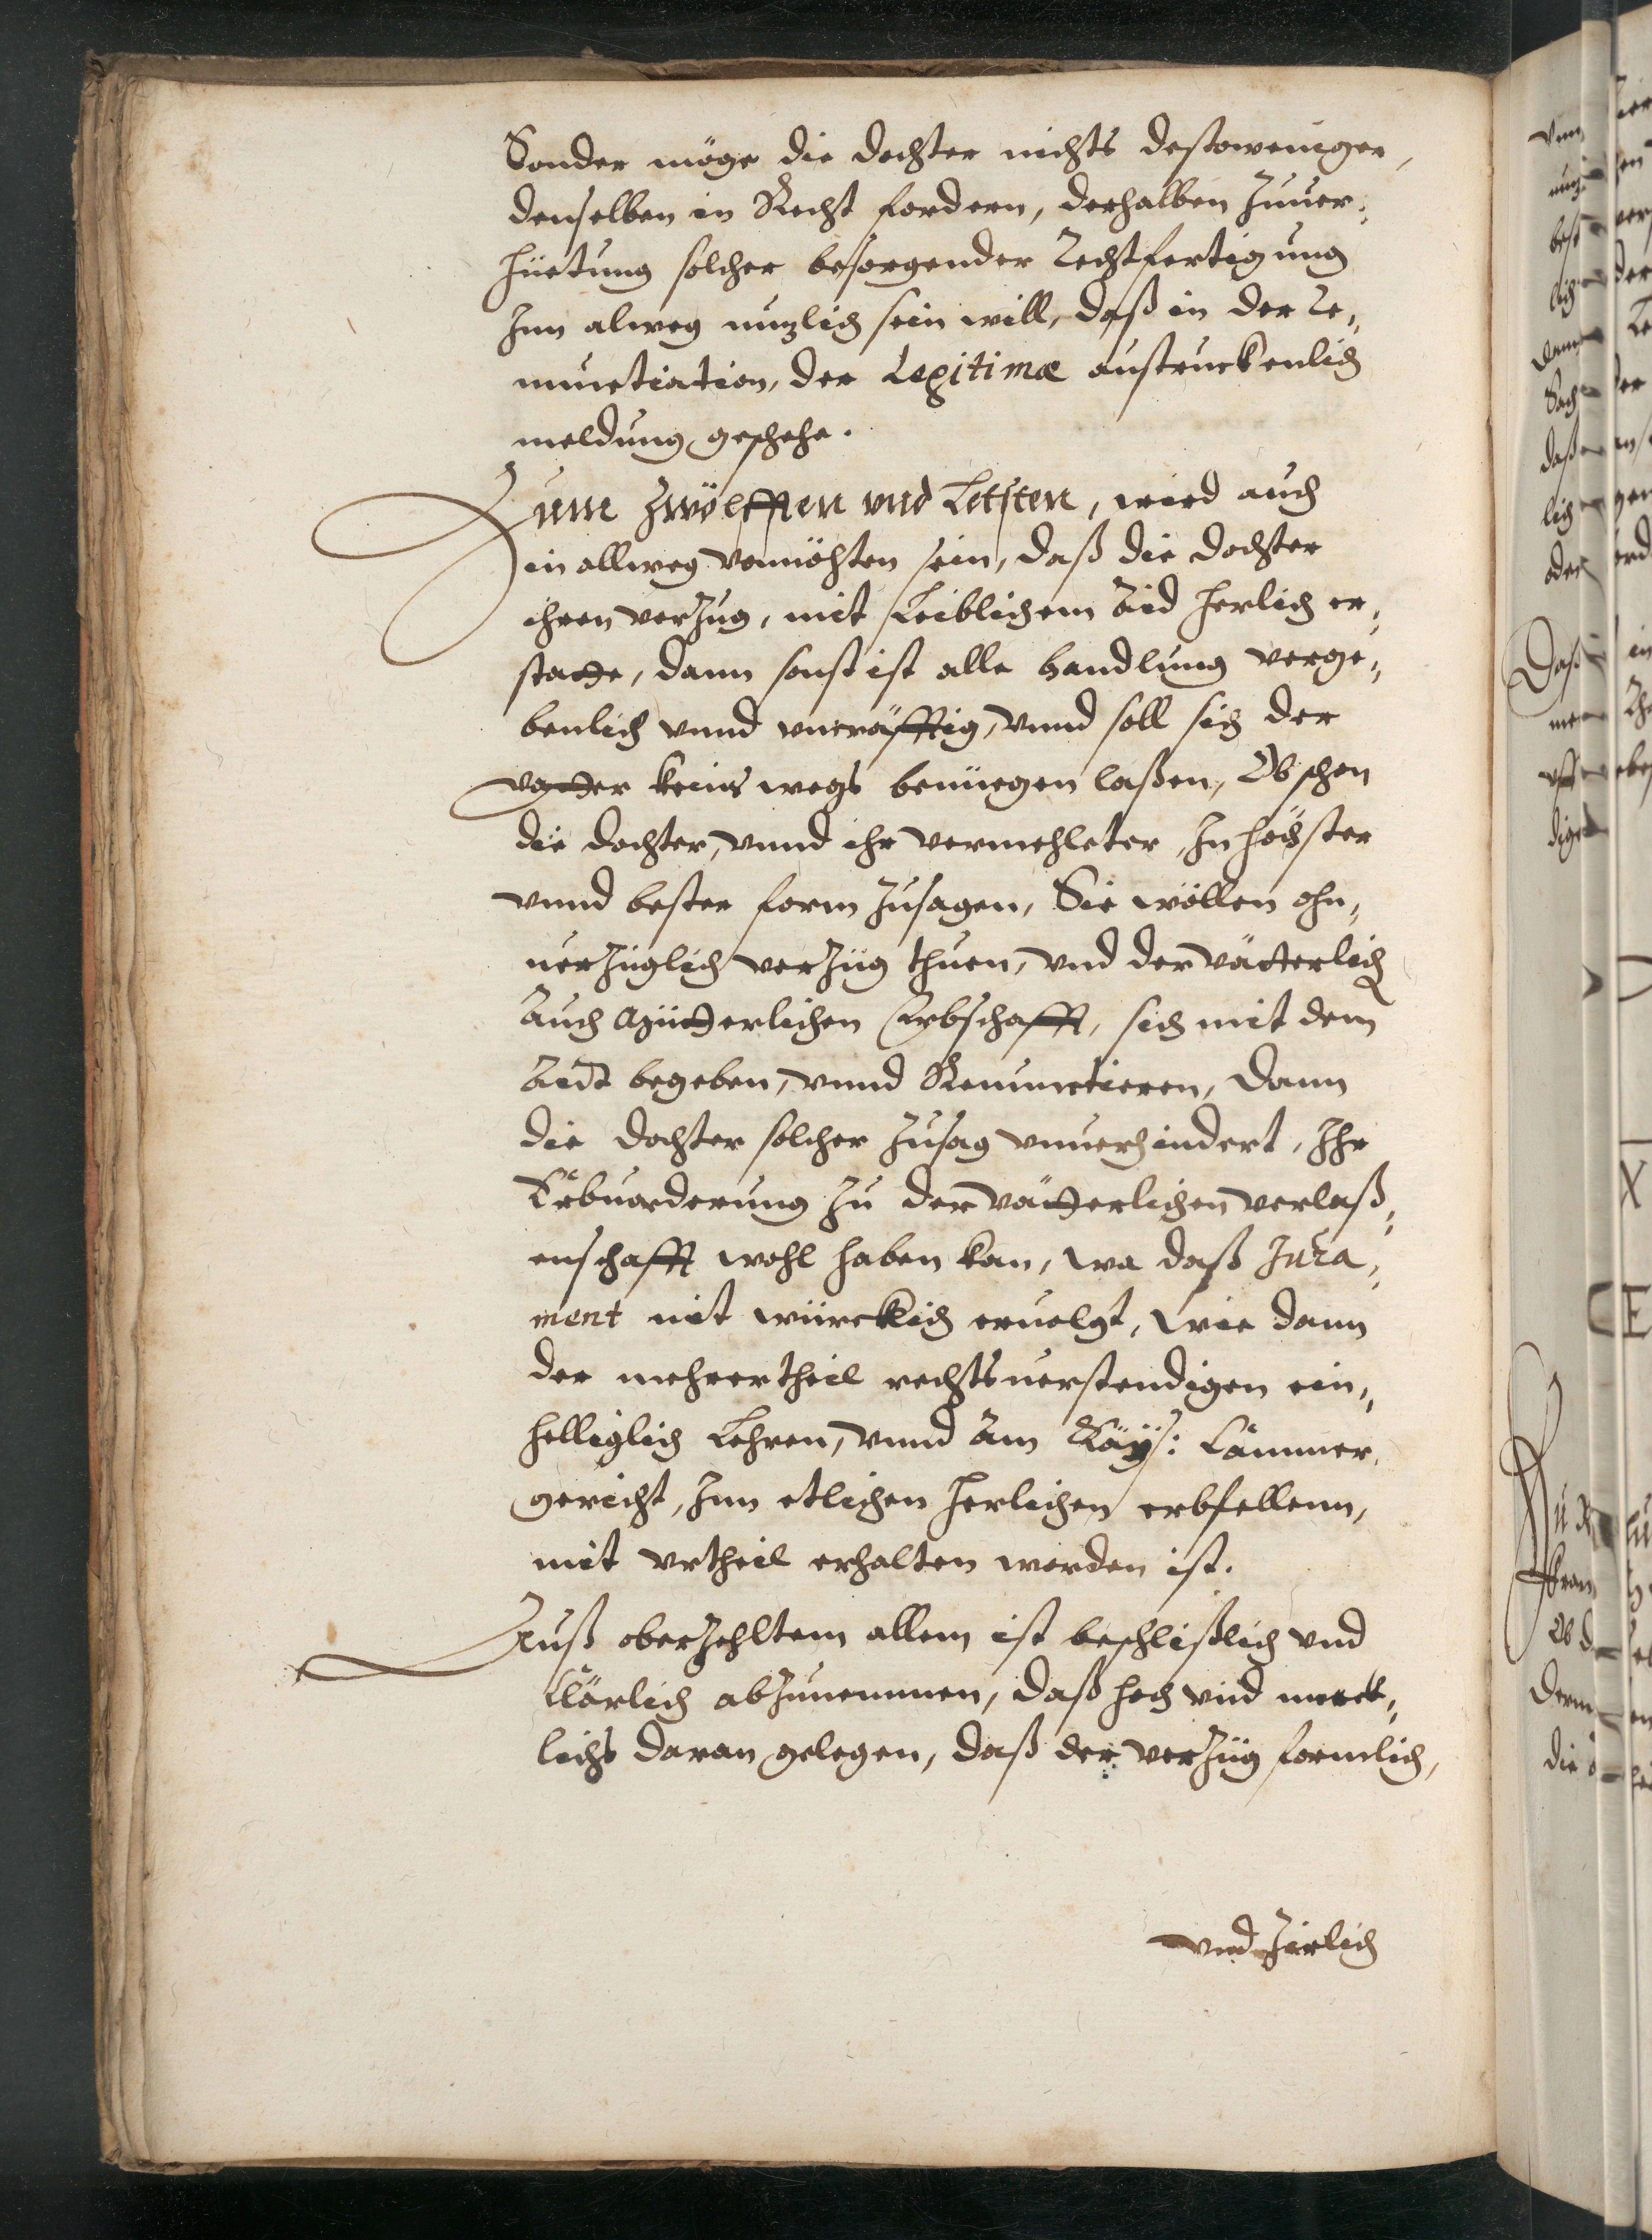 Sonder möge die dochter nichts destoweniger,
denselben in Recht fordern, derhalben Zuuer¬
hüetung solcher besorgender Rechtfertigung
Inn alweg nuzlich sein will, daß in der Re¬
nunctiation, der Legitimæ austruckenlich
meldung geschehe.
Zum Zwölfften vnd Letsten, wird auch
in allweg vonnöhten sein, daß die dochter
ihren verzug, mit Leiblichem Aid herlich er¬
statte, dann sonst ist alle handlung verge¬
benlich vnnd vncräfftig, vnnd soll sich der
vatter keins wegs benüegen laßen, Ob schon
die dochter, vnnd ihr vermehleter, In höchster
vnnd bester form Zusagen, Sie wöllen ohn¬
uerzüglich verzüg thuen, vnd der vätterlich
Auch Müetterlichen Erbschafft, sich mit dem
Aidt begeben, vnnd Renunctieren, Dann
die dochter solcher Zusag vnuerhindert, Ihr
Erbuorderung Zu der vätterlichen verlaß¬
enschafft wohl haben kan, wa daß Jura¬
ment nit würcklich eruolgt, wie dann
der mehrertheil rechtsuerstendigen ein¬
helliglich Lehren, vnnd Am Kaÿs: Cammer¬
gericht, Inn etlichen herlichen erbfellenn,
mit vrtheil erhalten worden ist.
Auß oberzehltem allem ist beschlißlich vnd
Clärlich abzunemmen, daß hoch vnd merck¬
lichs daran gelegen, daß der verzüg formlich,
vnd Zierlich